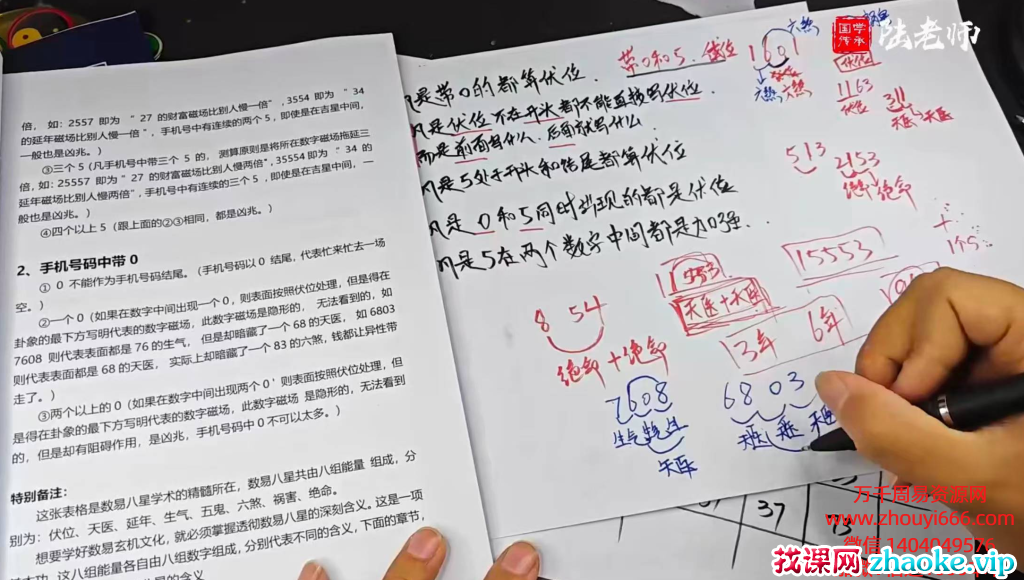 倍，如：2557 即为 “ 27 的财富磁场比别人慢一倍”，3554 即为 “ 34
的延年磁场比别人慢一倍”，手机号中有连续的两个 5，即使是在吉星中间，
一般也是凶兆。）
③三个 5（凡手机号中带三个 5 的， 测算原则是将所在数字磁场拖延三
倍，如：25557 即为 “ 27 的财富磁场比别人慢两倍”，35554 即为 “ 34 的
延年磁场比别人慢两倍”，手机号中有连续的三个 5 ，即使是在吉星中间，一
般也是凶兆。）
④四个以上 5（跟上面的②③相同，都是凶兆。）
2、手机号码中带 0
① 0 不能作为手机号码结尾。（手机号码以 0 结尾，代表忙来忙去一场
空。）
②一个 0（如果在数字中间出现一个 0，则表面按照伏位处理，但是得在
卦象的最下方写明代表的数字磁场，此数字磁场是隐形的， 无法看到的，如
7608 则代表表面都是 76 的生气， 但是却暗藏了一个 68 的天医， 如 6803
则代表表面都是 68 的天医， 实际上却暗藏了一个 83 的六煞，钱都让异性带
走了。）
③两个以上的 0（如果在数字中间出现两个 0 ' 则表面按照伏位处理，但
是得在卦象的最下方写明代表的数字磁场，此数字磁场 是隐形的，无法看到
的，但是却有阻碍作用，是凶兆，手机号码中 0 不可以太多。）
特别备注：
这张表格是数易八星学术的精髓所在，数易八星共由八组能量 组成，分
别为：伏位、天医、延年、生气、五鬼、六煞、祸害、绝命。
想要学好数易玄机文化，就必须掌握透彻数易八星的深刻含义。这是一项
功，这八组能量各自由八组数字组成，分别代表不同的含义，下面的章节，
凡是带0的都算伏位.
带0和5.伏位
凡是伏位不在开头都不能直接写伏位.
而是前面有什么.后面就写什么.
凡是5处于开头和结尾都算伏位
凡是 0和5同时出现的都是伏位
凡是5在两个数字中间都是加强.
1601
六煞
六煞 六煞
伏位
1163
伏位
311
天医→天医
513
2153
绝命 绝命
+
1个5
15553
天医+天医
13年 6年
8 54
绝命+绝命
7608
生气 生气
天医
6803
天医 天医 天医
37
73
国学
传承
陆老师
万千周易资源网
www.zhouyi666.com
微信 1404049526
找课网 zhaoke.vip